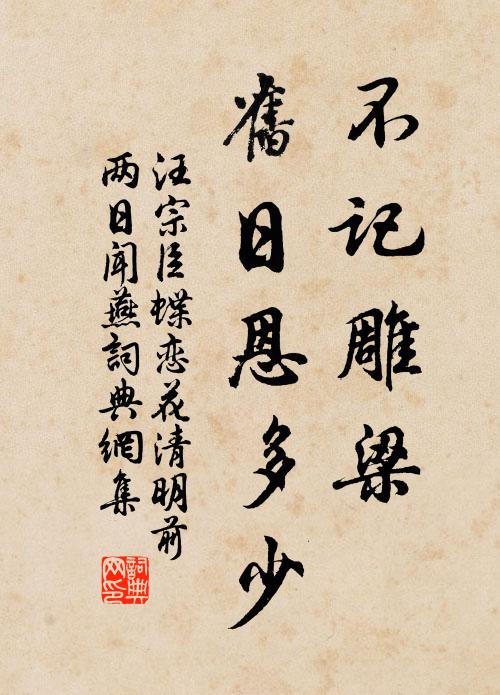 不记雕梁
舊日恩多少
汪宗臣蝶恋花清明前
两日闻燕詞典網集
詞典网印